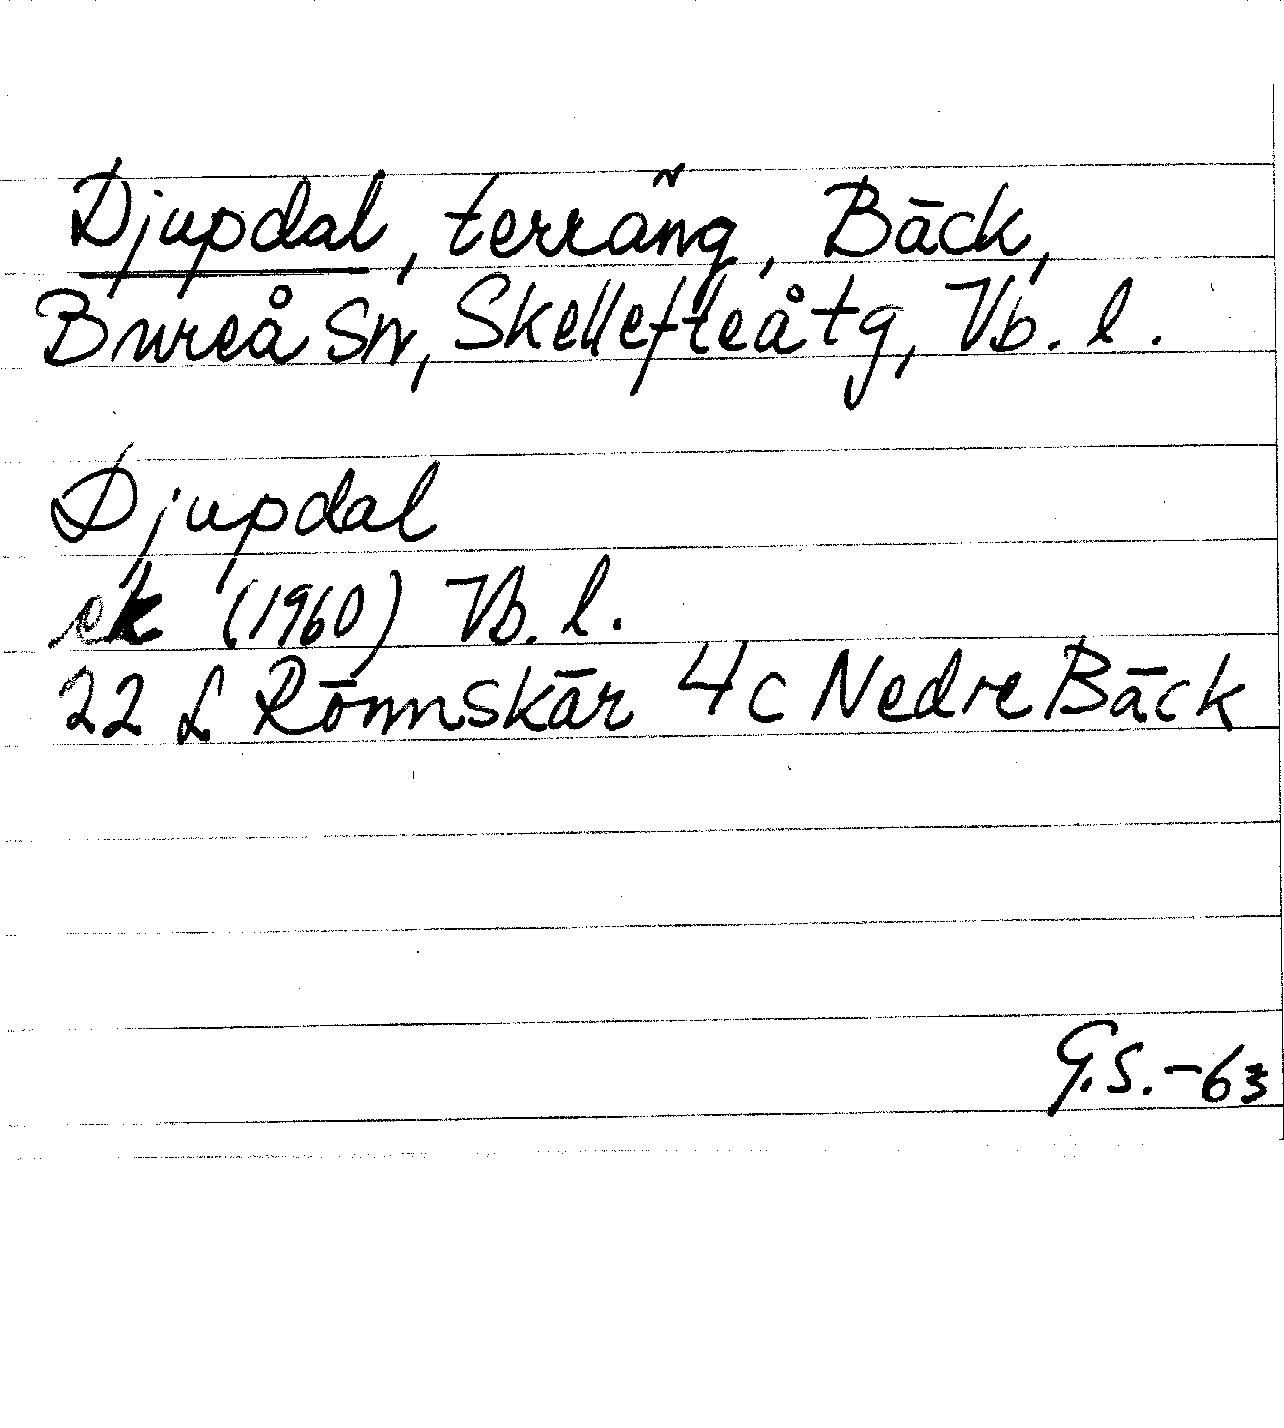 Djupdal, terräng, Bäck,
Bureå sn, Skellefteå tg, Vb. l.
Djupdal
ek (1960) Vb. l.
22 L Rönnskär 4c Nedre Bäck
G.S.-63